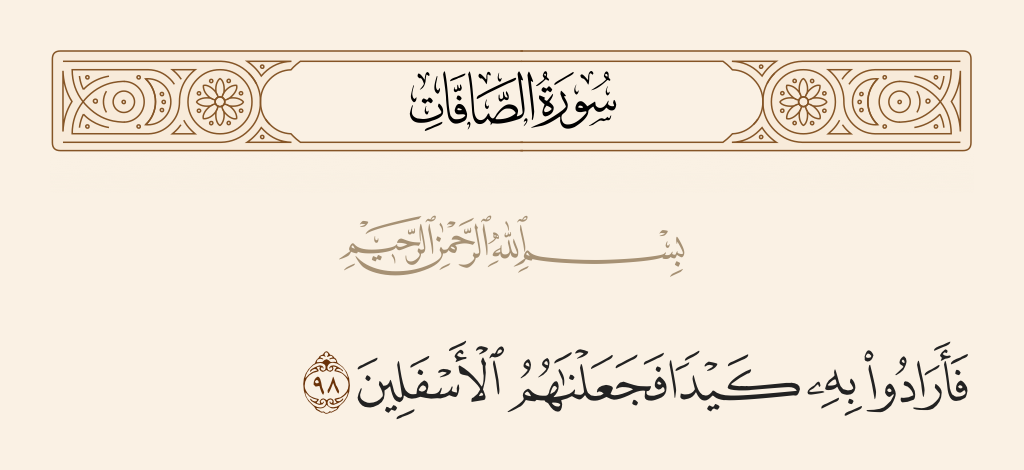 سُورَةُ الصَّافَّاتِ
بِسْمِ ٱللَّهِ ٱلرَّحْمَٰنِ ٱلرَّحِيمِ
فَأَرَادُوا۟ بِهِۦ كَيْدًا فَجَعَلْنَٰهُمُ ٱلْأَسْفَلِينَ ٩٨